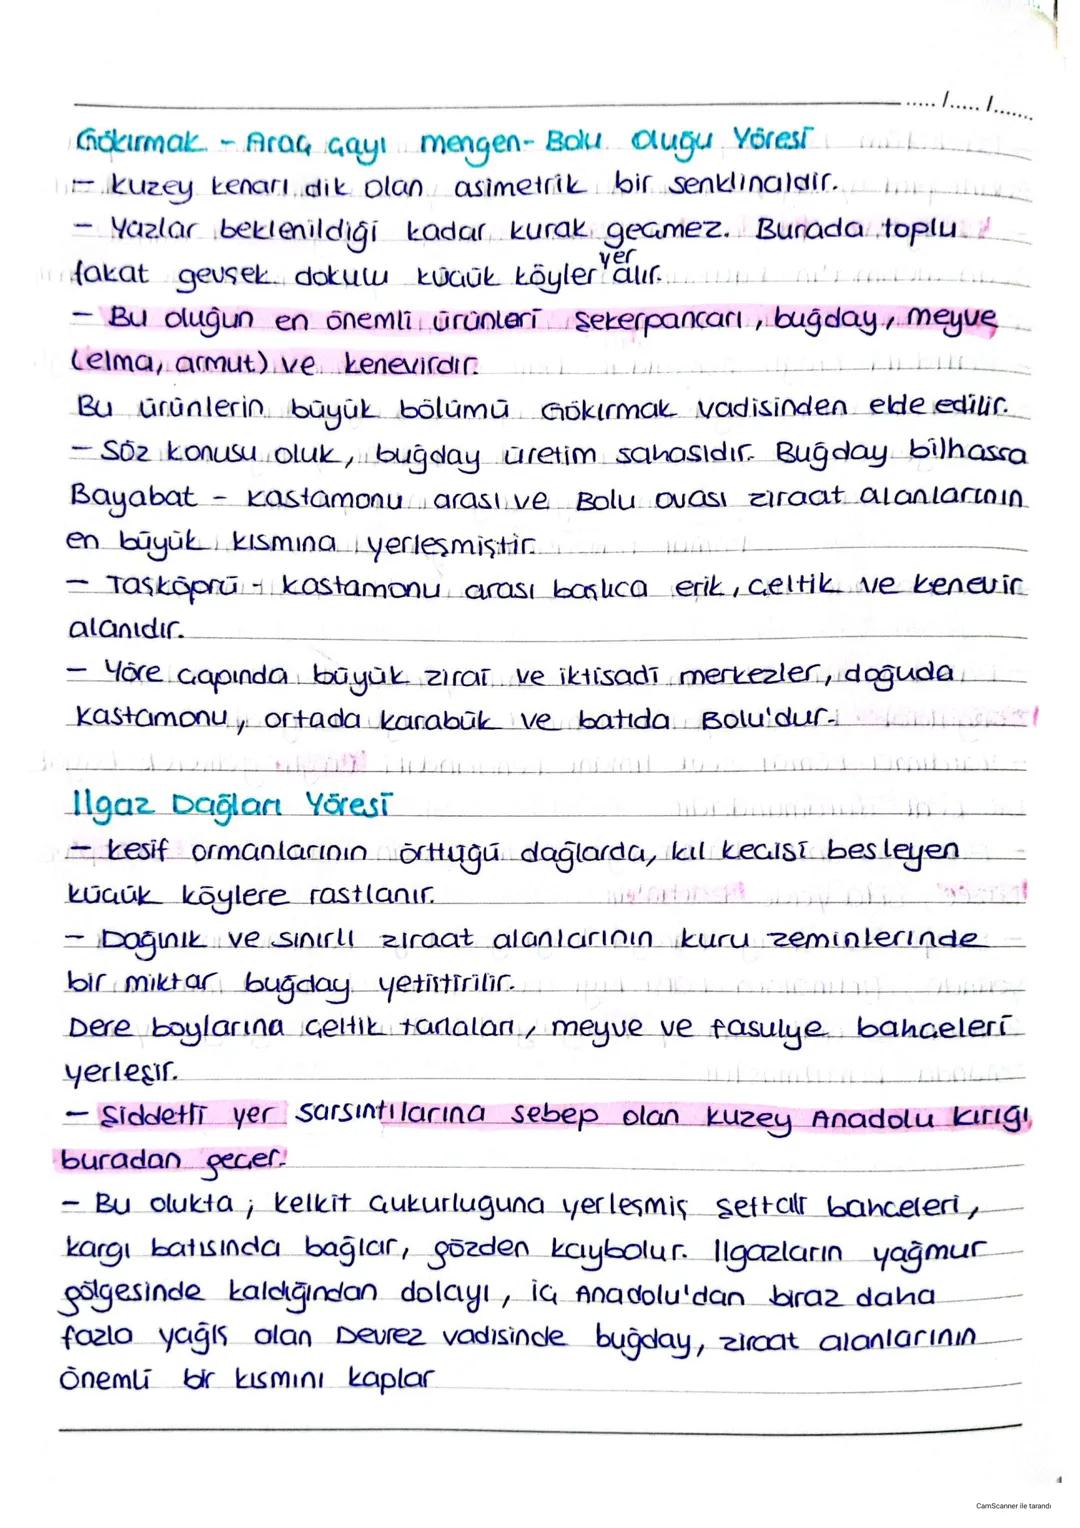 ...../...../.......
Gökırmak - Araç çayı mengen- Bolu oluğu Yöresi
- kuzey kenarı dik olan asimetrik bir senklinaldir.
- Yazlar beklenildiği kadar kurak geçmez. Burada toplu
fakat gevşek dokulu küçük köyler yer alır.
- Bu oluğun en önemli ürünleri şekerpancarı, buğday, meyve
(elma, armut) ve kenevirdir.
Bu ürünlerin büyük bölümü Gökırmak vadisinden elde edilir.
- Söz konusu oluk, buğday üretim sahasıdır. Buğday bilhassa
Bayabat - Kastamonu arası ve Bolu ovası ziraat alanlarının
en büyük kısmına yerleşmiştir.
- Taşköprü - kastamonu arası başlıca erik, çeltik ve kenevir
alanıdır.
- Yöre çapında büyük zirai ve iktisadi merkezler, doğuda
Kastamonu, ortada karabük ve batıda Bolu'dur.
Ilgaz Dağları Yöresi
- kesif ormanlarının örttüğü dağlarda, kıl keçisi besleyen
küçük köylere rastlanır.
- Dağınık ve sınırlı ziraat alanlarının kuru zeminlerinde
bir miktar buğday yetiştirilir.
Dere boylarına çeltik tarlaları, meyve ve fasulye bahçeleri
yerleşir.
- Şiddetli yer sarsıntılarına sebep olan kuzey Anadolu kırığı
buradan geçer.
- Bu olukta ; kelkit çukurluğuna yerleşmiş şeftali bahçeleri,
kargı batısında bağlar, gözden kaybolur. Ilgazların yağmur
gölgesinde kaldığından dolayı, iç Anadolu'dan biraz daha
fazla yağış alan Devrez vadisinde buğday, ziraat alanlarının
önemli bir kısmını kaplar
CamScanner ile tarandı